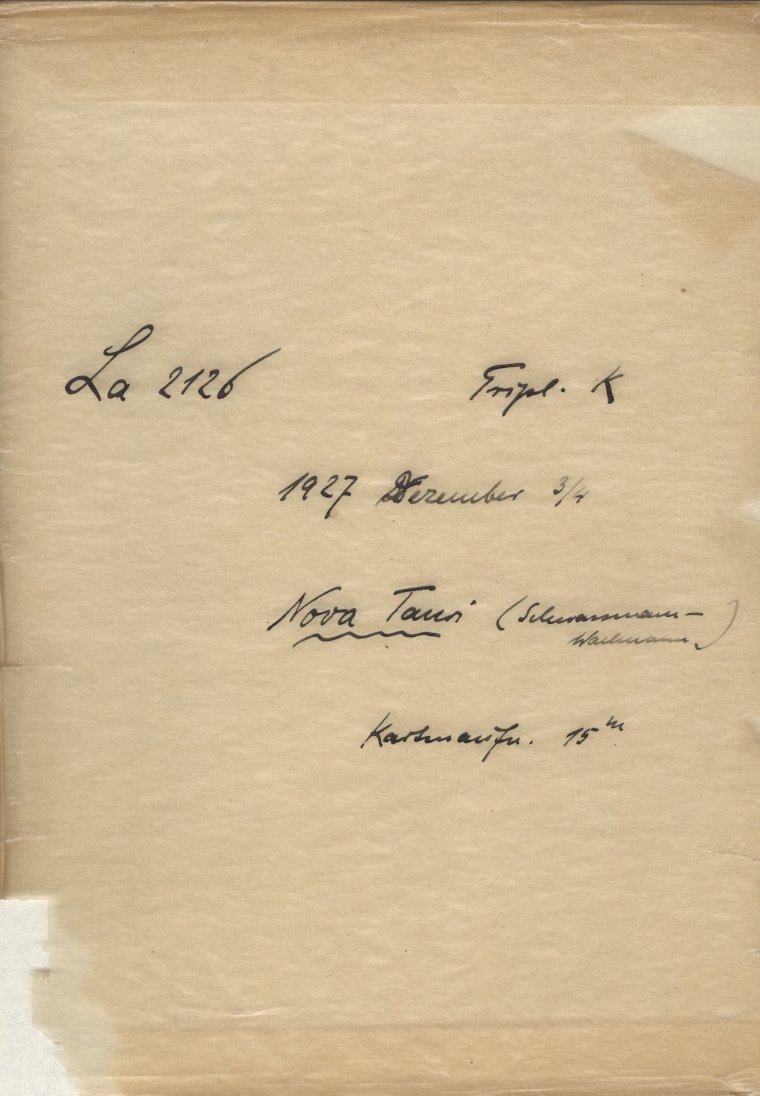 La 2126 Tripl. K
1927 Dezember 3/4
Nova Tauri (Schwassmann-
Wachmann)
Kartenaufn. 15m